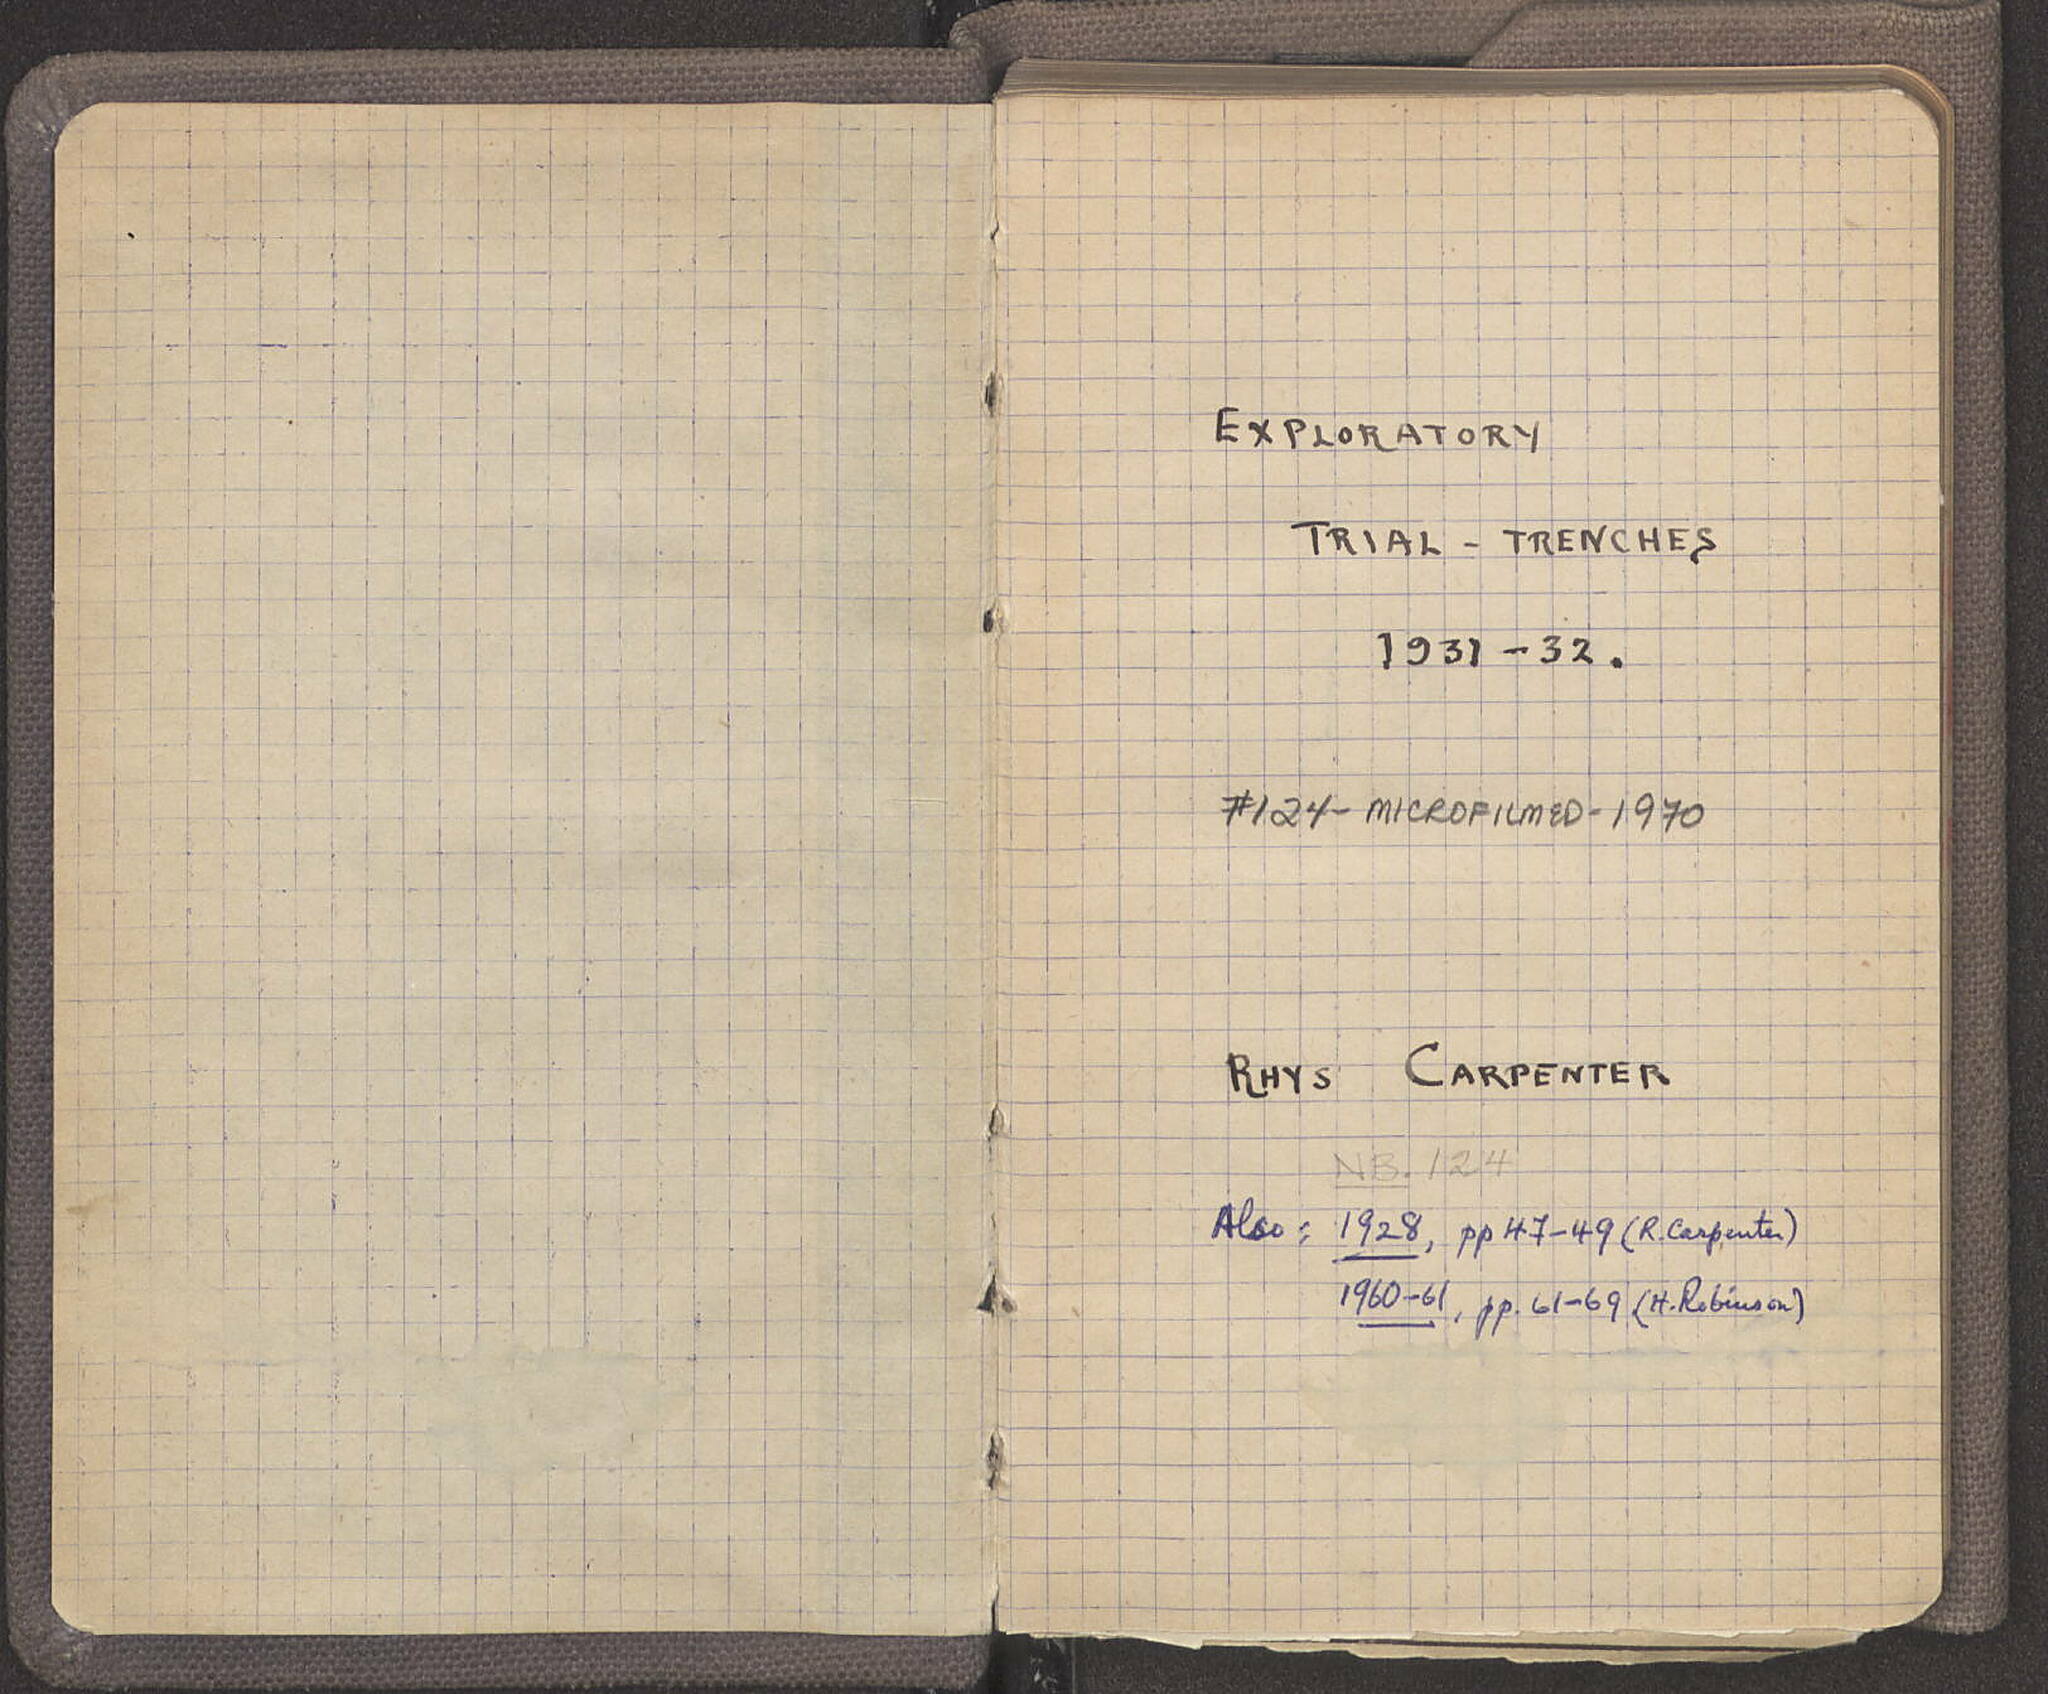 EXPLORATORY
TRIAL - TRENCHES
1931-32.
#124- MICROFILMED-1970
RHYS CARPENTER
NB. 124
Also: 1928, pp 47-49 (R. Carpenter)
1960-61, pp. 61-69 (H. Robinson)